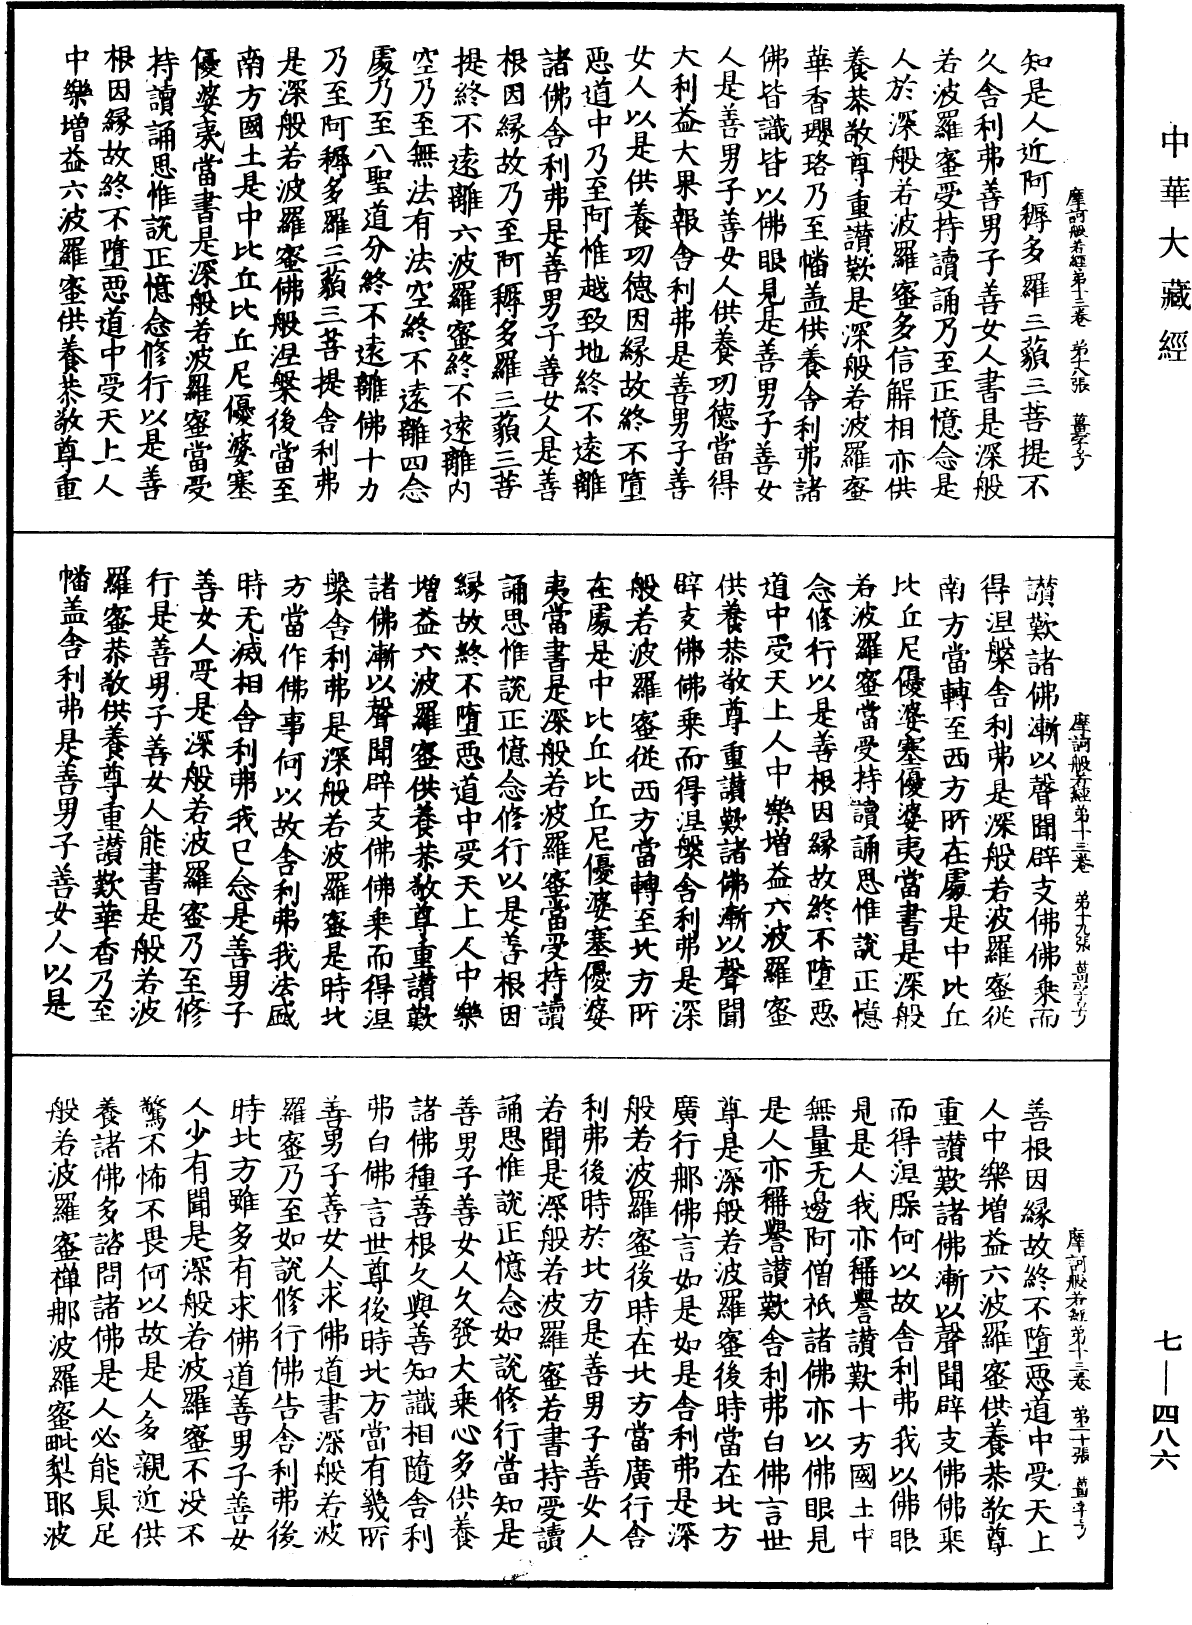 中華大藏經
摩訶般若經第十三卷 第十八張
知是人近阿耨多羅三藐三菩提不
久舍利弗善男子善女人書是深般
若波羅蜜受持讀誦乃至正憶念是
人於深般若波羅蜜多信解相亦供
養恭敬尊重讃歎是深般若波羅蜜
華香瓔珞乃至幡盖供養舍利弗諸
佛皆識皆以佛眼見是善男子善女
人是善男子善女人供養功德當得
大利益大果報舍利弗是善男子善
女人以是供養功德因縁故終不墮
惡道中乃至阿惟越致地終不遠離
諸佛舍利弗是善男子善女人是善
根因縁故乃至阿耨多羅三藐三菩
提終不遠離六波羅蜜終不遠離内
空乃至無法有法空終不遠離四念
處乃至八聖道分終不遠離佛十力
乃至阿耨多羅三藐三菩提舍利弗
是深般若波羅蜜佛般涅槃後當至
南方國土是中比丘比丘尼優婆塞
優婆夷當書是深般若波羅蜜當受
持讀誦思惟說正憶念修行以是善
根因縁故終不墮惡道中受天上人
中樂增益六波羅蜜供養恭敬尊重
摩訶般若經第十三卷 第十九張
讃歎諸佛漸以聲聞辟支佛佛乗而
得涅槃舍利弗是深般若波羅蜜從
南方當轉至西方所在處是中比丘
比丘尼優婆塞優婆夷當書是深般
若波羅蜜當受持讀誦思惟說正憶
念修行以是善根因縁故終不墮惡
道中受天上人中樂增益六波羅蜜
供養恭敬尊重讃歎諸佛漸以聲聞
辟支佛佛乗而得涅槃舍利弗是深
般若波羅蜜從西方當轉至北方所
在處是中比丘比丘尼優婆塞優婆
夷當書是深般若波羅蜜當受持讀
誦思惟說正憶念修行以是善根因
縁故終不墮惡道中受天上人中樂
增益六波羅蜜供養恭敬尊重讃歎
諸佛漸以聲聞辟支佛佛乗而得涅
槃舍利弗是深般若波羅蜜是時北
方當作佛事何以故舍利弗我法盛
時无滅相舍利弗我已念是善男子
善女人受是深般若波羅蜜乃至修
行是善男子善女人能書是般若波
羅蜜恭敬供養尊重讃歎華香乃至
幡盖舍利弗是善男子善女人以是
摩訶般若經第十三卷 第二十張
善根因縁故終不墮惡道中受天上
人中樂增益六波羅蜜供養恭敬尊
重讃歎諸佛漸以聲聞辟支佛佛乗
而得涅槃何以故舍利弗我以佛眼
見是人我亦稱譽讃歎十方國土中
無量无邊阿僧祇諸佛亦以佛眼見
是人亦稱譽讃歎舍利弗白佛言世
尊是深般若波羅蜜後時當在北方
廣行那佛言如是如是舍利弗是深
般若波羅蜜後時在北方當廣行舍
利弗後時於北方是善男子善女人
若聞是深般若波羅蜜若書持受讀
誦思惟說正憶念如說修行當知是
善男子善女人久發大乗心多供養
諸佛種善根久與善知識相隨舍利
弗白佛言世尊後時北方當有幾所
善男子善女人求佛道書深般若波
羅蜜乃至如說修行佛告舍利弗後
時北方雖多有求佛道善男子善女
人少有聞是深般若波羅蜜不没不
驚不怖不畏何以故是人多親近供
養諸佛多諮問諸佛是人必能具足
般若波羅蜜禪那波羅蜜毗梨耶波
七—四八六